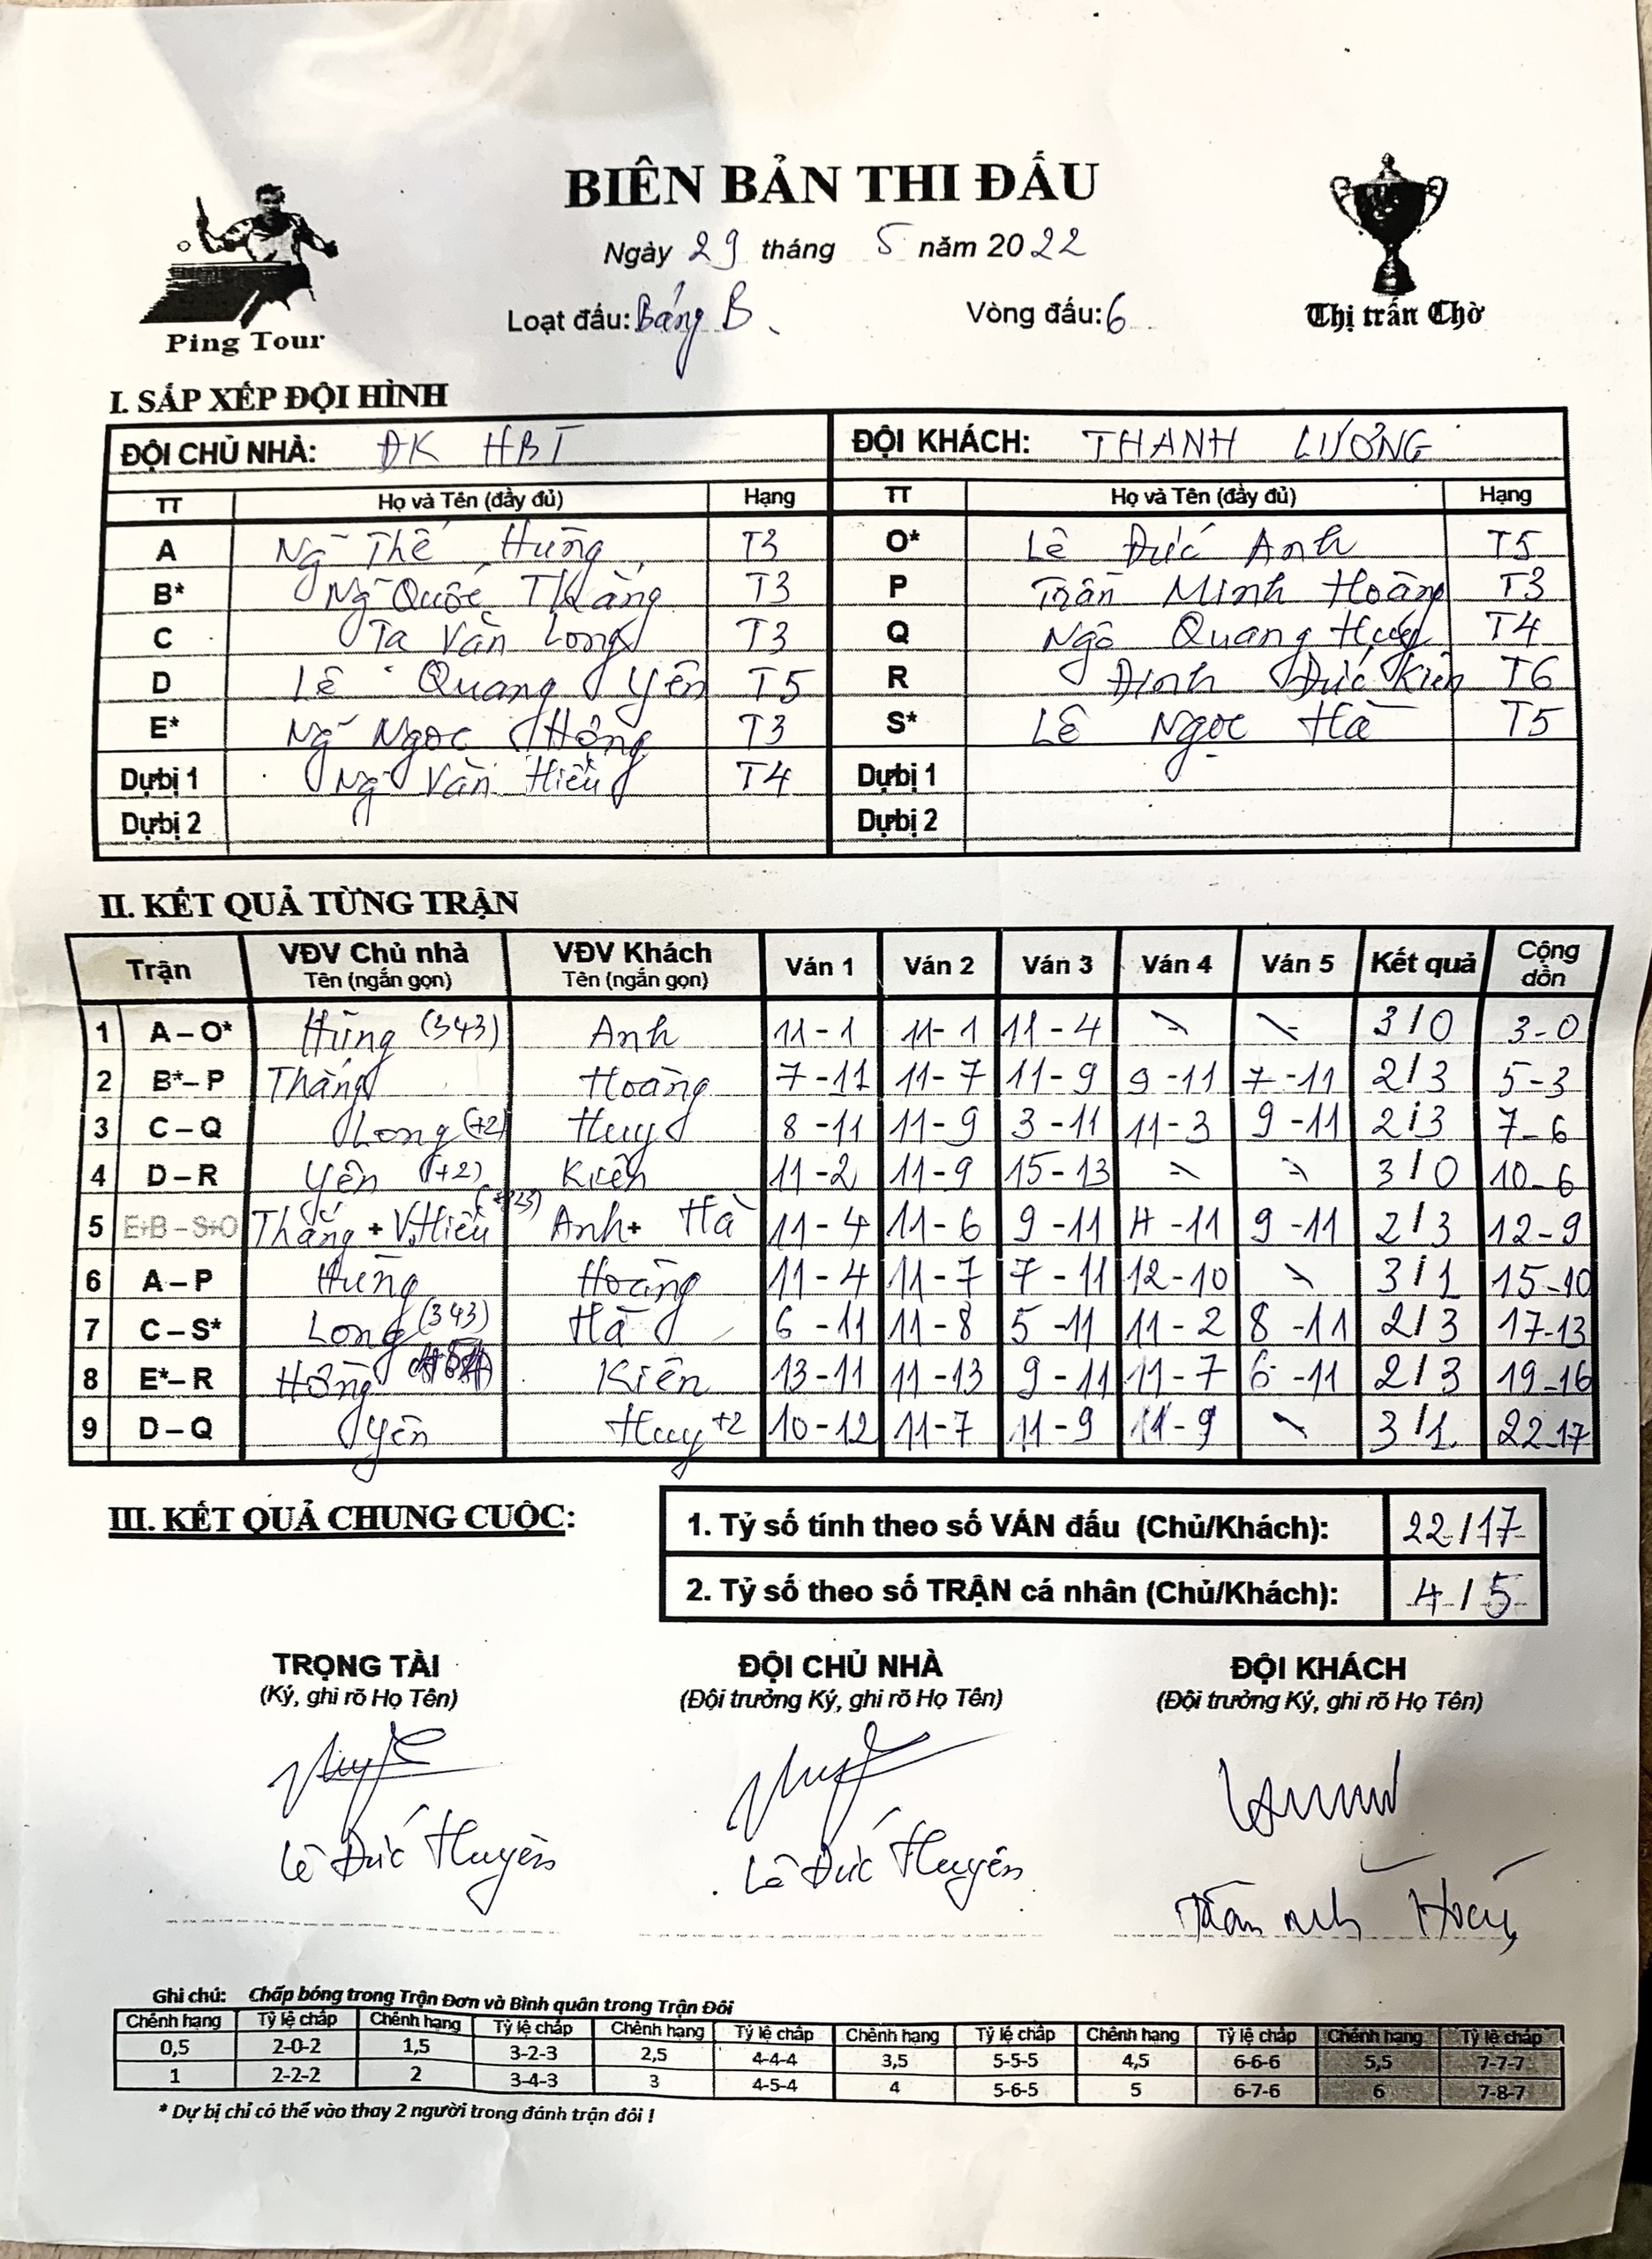 BIÊN BẢN THI ĐẤU
Ngày 29 tháng 5 năm 2022
Loạt đấu: Bảng B Vòng đấu: 6
Ping Tour
Thị trấn Chờ
I. SẮP XẾP ĐỘI HÌNH
ĐỘI CHỦ NHÀ: ĐK HBT ĐỘI KHÁCH: THANH LƯƠNG
TT Họ và Tên (đầy đủ) Hạng TT Họ và Tên (đầy đủ) Hạng
A Ng̃ Thế Hùng T3 O* Lê Đức Anh T5
B* Ng̃ Quốc Thắng T3 P Trần Minh Hoàng T3
C Tạ Văn Long T3 Q Ngô Quang Huy T4
D Lê Quang Yên T5 R Đinh Đức Kiên T6
E* Ng̃ Ngọc Hồng T3 S* Lê Ngọc Hà T5
Dự bị 1 Ng̃ Văn Hiếu T4 Dự bị 1
Dự bị 2 Dự bị 2
II. KẾT QUẢ TỪNG TRẬN
Trận VĐV Chủ nhà Tên (ngắn gọn) VĐV Khách Tên (ngắn gọn) Ván 1 Ván 2 Ván 3 Ván 4 Ván 5 Kết quả Cộng dồn
1 A – O* Hùng (343) Anh 11-1 11-1 11-4 3/0 3-0
2 B* – P Thắng Hoàng 7-11 11-7 11-9 9-11 7-11 2/3 5-3
3 C – Q Long (+2) Huy 8-11 11-9 3-11 11-3 9-11 2/3 7-6
4 D – R Yên (+2) Kiên 11-2 11-9 15-13 3/0 10-6
5 E+B – S+O Thắng + V.Hiếu Anh + Hà 11-4 11-6 9-11 4-11 9-11 2/3 12-9
6 A – P Hùng Hoàng 11-4 11-7 7-11 12-10 3/1 15-10
7 C – S* Long (343) Hà 6-11 11-8 5-11 11-2 8-11 2/3 17-13
8 E* – R Hồng Kiên 13-11 11-13 9-11 11-7 6-11 2/3 19-16
9 D – Q Yên Huy +2 10-12 11-7 11-9 11-9 3/1 22-17
III. KẾT QUẢ CHUNG CUỘC:
1. Tỷ số tính theo số VÁN đấu (Chủ/Khách): 22/17
2. Tỷ số theo số TRẬN cá nhân (Chủ/Khách): 4/5
TRỌNG TÀI ĐỘI CHỦ NHÀ ĐỘI KHÁCH
(Ký, ghi rõ Họ Tên) (Đội trưởng Ký, ghi rõ Họ Tên) (Đội trưởng Ký, ghi rõ Họ Tên)
Lê Đức Huyên Lê Đức Huyên Trần Minh Hoàng
Ghi chú: Chấp bóng trong Trận Đơn và Bình quân trong Trận Đôi
Chênh hạng Tỷ lệ chấp Chênh hạng Tỷ lệ chấp Chênh hạng Tỷ lệ chấp Chênh hạng Tỷ lệ chấp Chênh hạng Tỷ lệ chấp Chênh hạng Tỷ lệ chấp
0,5 2-0-2 1,5 3-2-3 2,5 4-4-4 3,5 5-5-5 4,5 6-6-6 5,5 7-7-7
1 2-2-2 2 3-4-3 3 4-5-4 4 5-6-5 5 6-7-6 6 7-8-7
* Dự bị chỉ có thể vào thay 2 người trong đánh trận đôi !